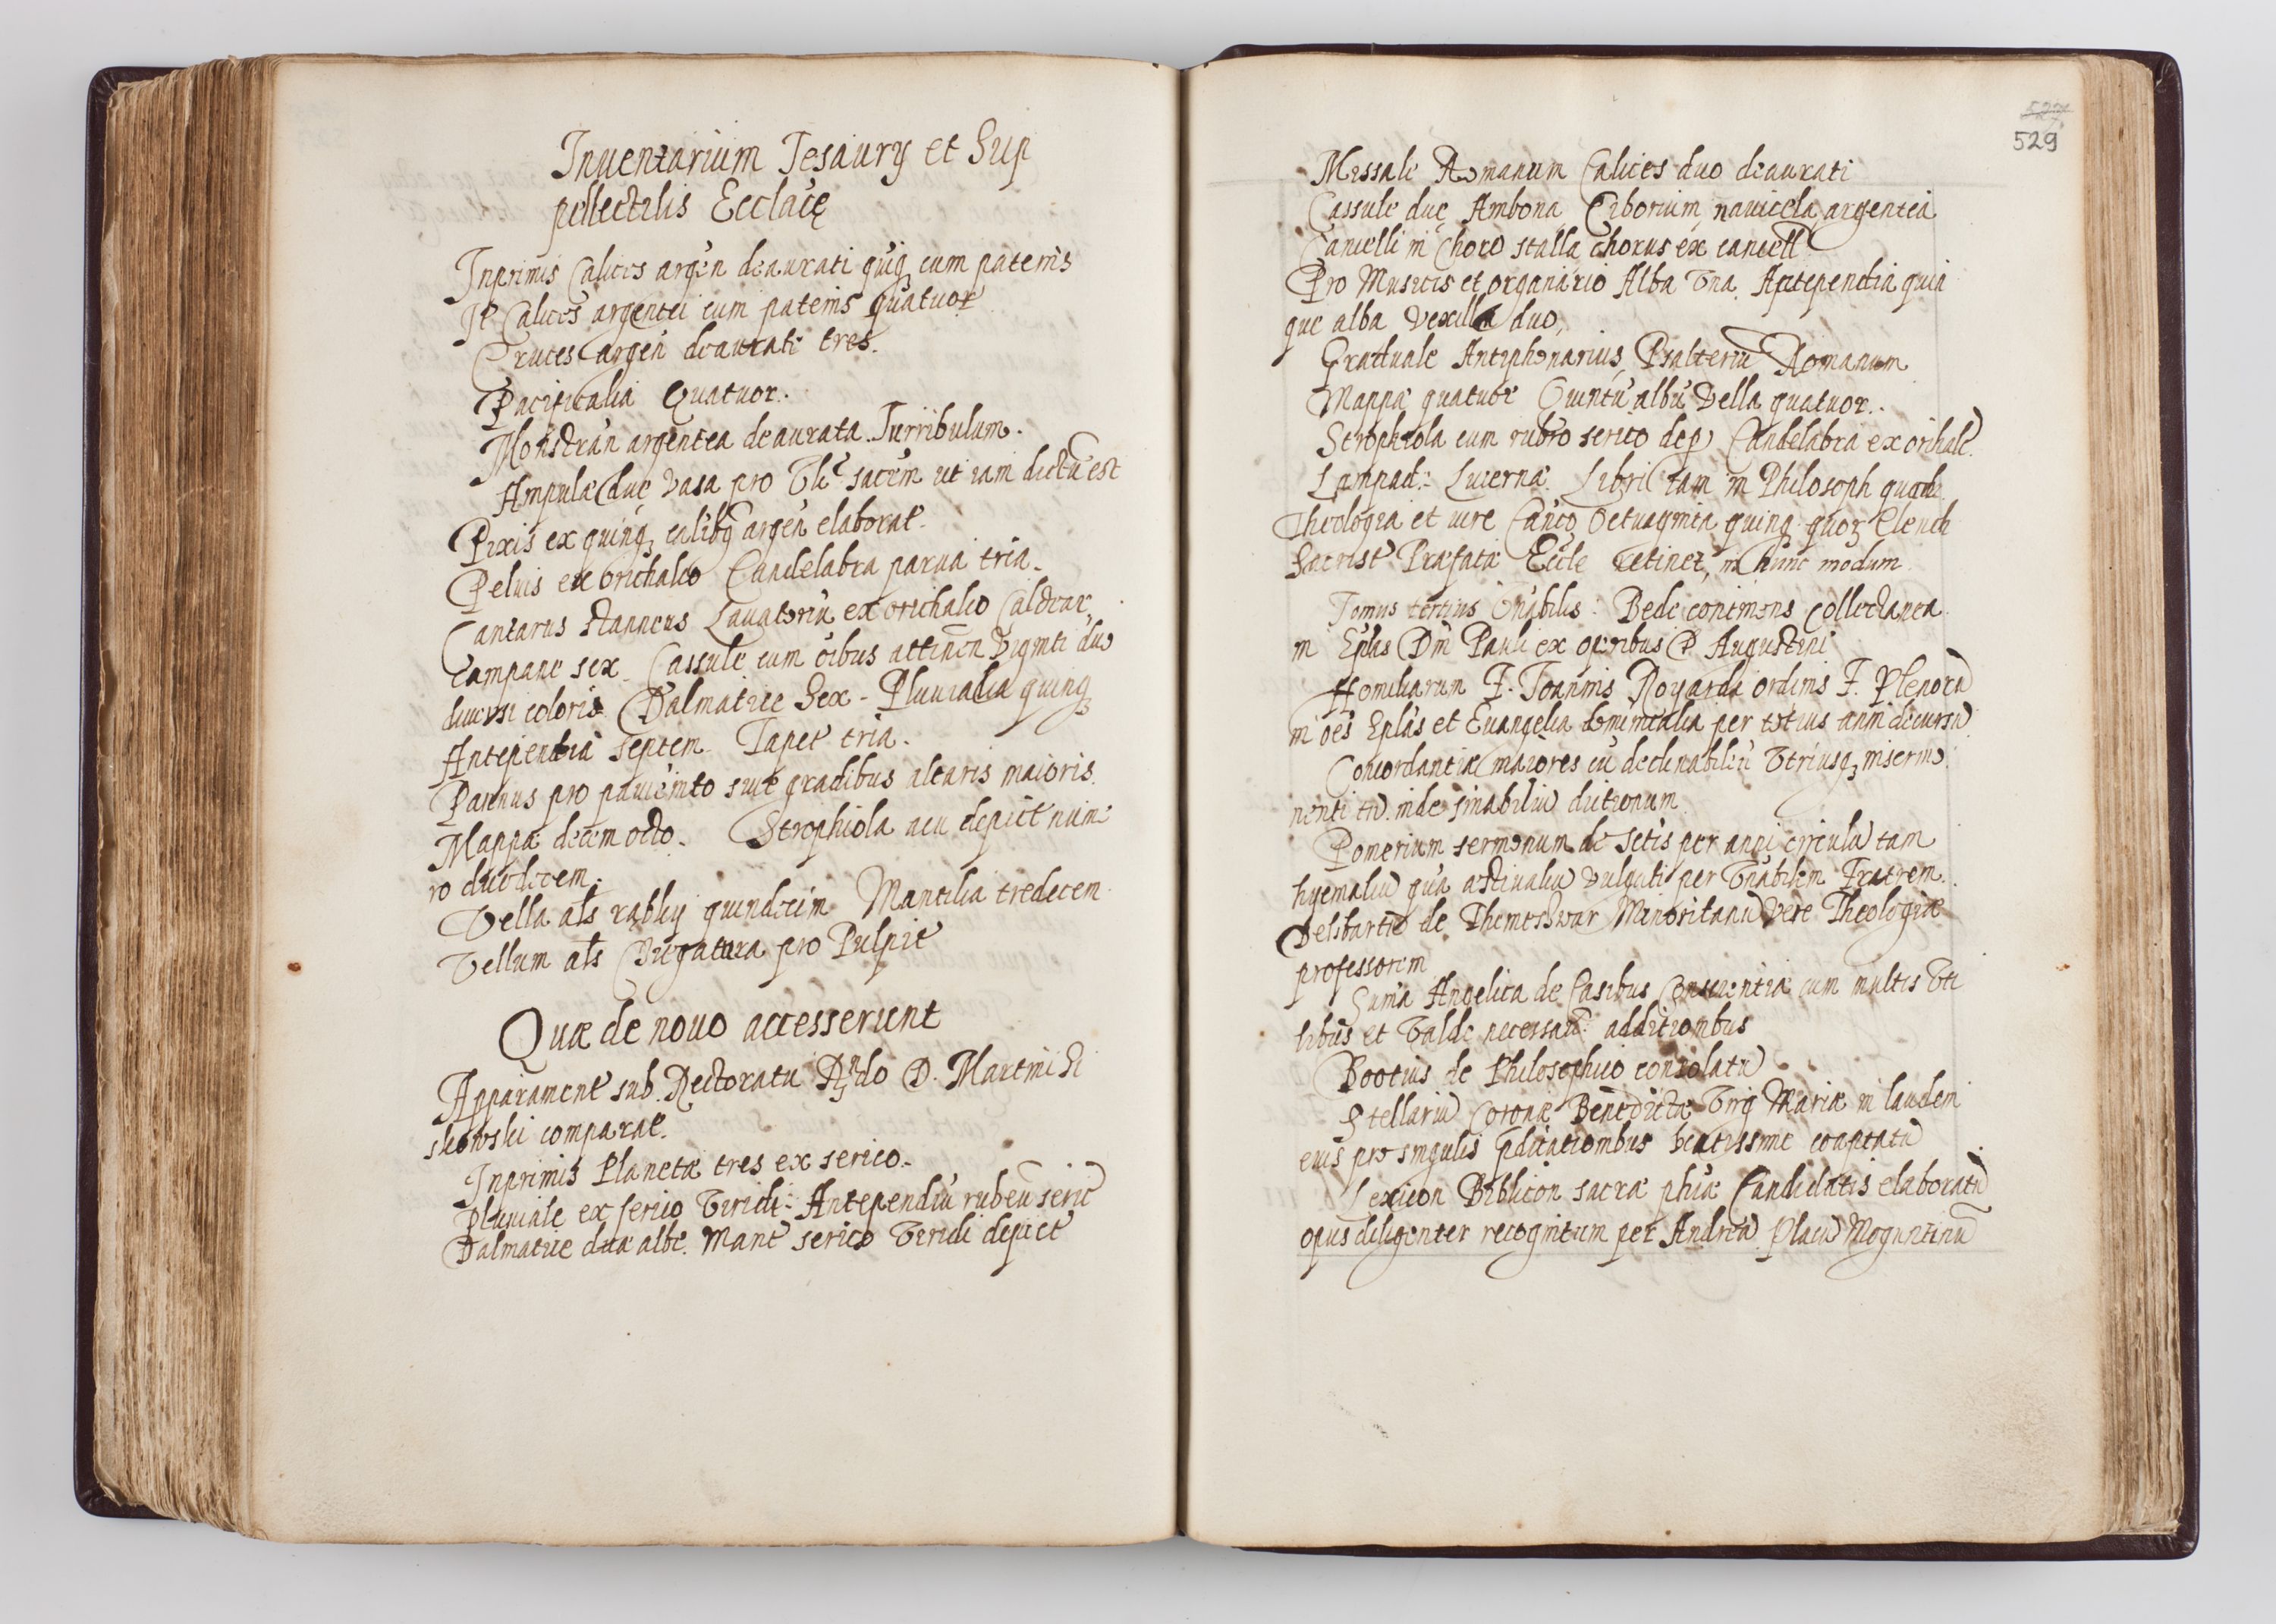 Inuentarium Tesaury et Sup
pellectilis Ecclaię
Inprimis Calices argen deaurati quiq cum patenis
It Calices argentei cum patenis quatuor
Cruces argen deaurati tres.
Pacificalia Quatuor.
Monstran argentea deaurata. Turribulum.
Ampulæ duę vasa pro sacrm ut iam dictu est
Pixis ex quinq calibq argen elaborat.
Peluis ex orichalco Candelabra parua tria.
Cantarus stanneus Lauatoriu ex orichalco Caldear
Campane sex. Cassule cum oibus attinen Viginti duo
diuersi coloris. Dalmatice Sex - Pluuialia quinq
Antependia septem. Tapet tria.
Pannus pro pauiemto siue gradibus altaris maioris.
Mappæ decem octo. Strophiola acu depict nume
ro duodecem.
Vella als rabky quindecim Mantilia tredecem
Vellum als pro Pulpit
Quæ de nouo accesserunt
Apparament sub Rectoratu Rndo D. Martini Si
skowski comparat.
Inprimis Planetæ tres ex serico.
Pluuiale ex serico Viridi: Antependiu rubeu seric
Dalmatice duæ albe. Mant serico Viridi depict
527
529
Missale Romanum Calices duo deaurati
Cassule duę Ambona Ciborium nauicela argentea
Cancelli in Choro stalla Chorus ex cancell
Pro Musicis et organario Alba Vna. Antependia quin
que alba Vexilla duo,
Graduale Antiphonarius, Psalteriu Romanum
Mappæ quatuor albu Vella quatuor.
Strophiola cum rubro serico dep Candelabra ex orichalc.
Lampad: Lucernæ. Libri tam in Philosoph quam
Theologia et iure Canco Octuaginta quinq quoz Elench
Sacrist Præfatæ Eccle retinet, in hunc modum
Tomus tertius Vnabilis: Bede continens collectanea
in Eplas Diui Pauli ex operibus D Augustini
Homiliarum F. Joannis Royardi ordinis F.
in oes Eplas et Euangelia dominicalia per totius anni decursu
Concordantiæ maiores cu declinabiliu Vtriusq inserm
nenti tu. inde sinabiliu dictionum
Pomerium sermonum de Sctis per anni circulu tam
hyemaliu qua æstiualiu Vulgati per Vnabilem Fratrem.
Pelsbartu de Themeswar Minoritanu Vere Theologiæ
professorem
Suma Angelica de Casibus Conscientiæ cum multis Vti
libus et Valde necessar: additionibus
Bootius de Philosophico consolatu
Stellariu Coronæ Benedictæ Virg Mariæ in laudem
eius pro singulis pdicationibus coaptatu
Lexicon Biblicon sacræ phiæ Candidatis elaboratu
opus diligenter recognitum per Andrea Placu Moguntinu